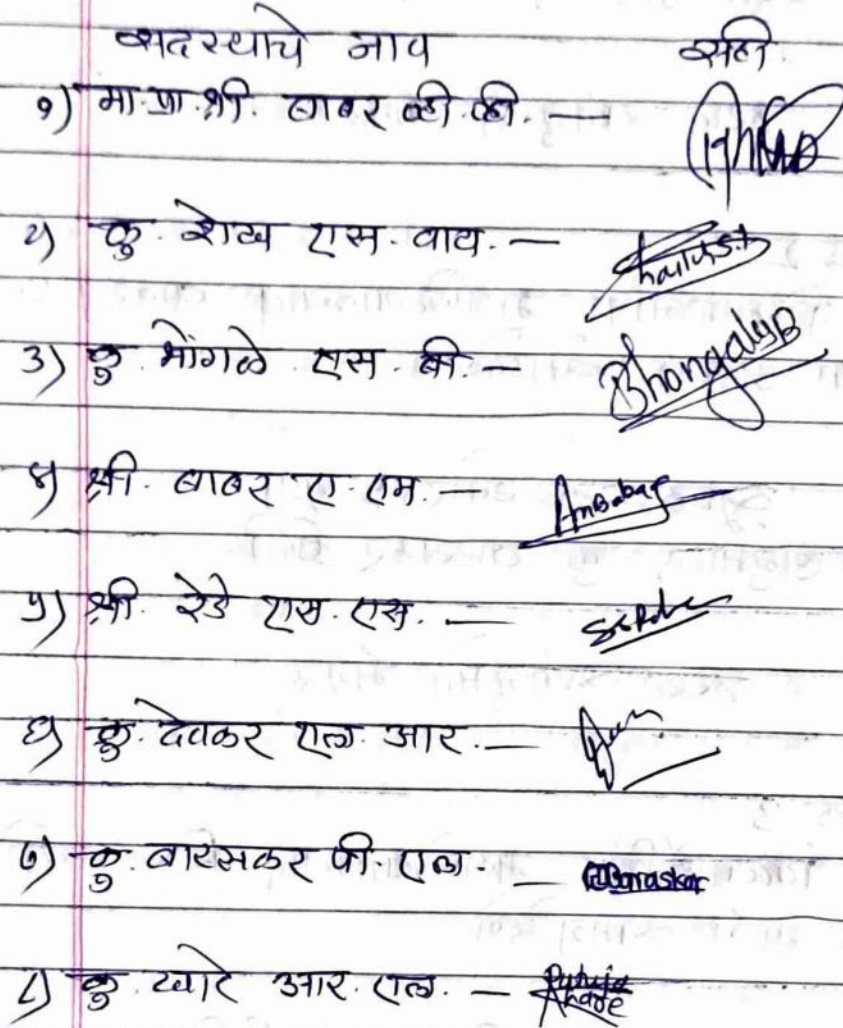 सदस्याचे नाव सही
१) मा. प्रा. श्री. बाबर व्ही. व्ही. —
२) कु. शेख एस. वाय. — Shaikh S.Y
३) कु. भोंगळे एस. बी. — Bhongale
४) श्री. बाबर ए. एम. — AmBabar
५) श्री. रेडे एस. एस. —
६) कु. देवकर एल. आर. —
७) कु. बारसकर पी. एल. — Baraskar
८) कु. खारे आर. एल. — Khare